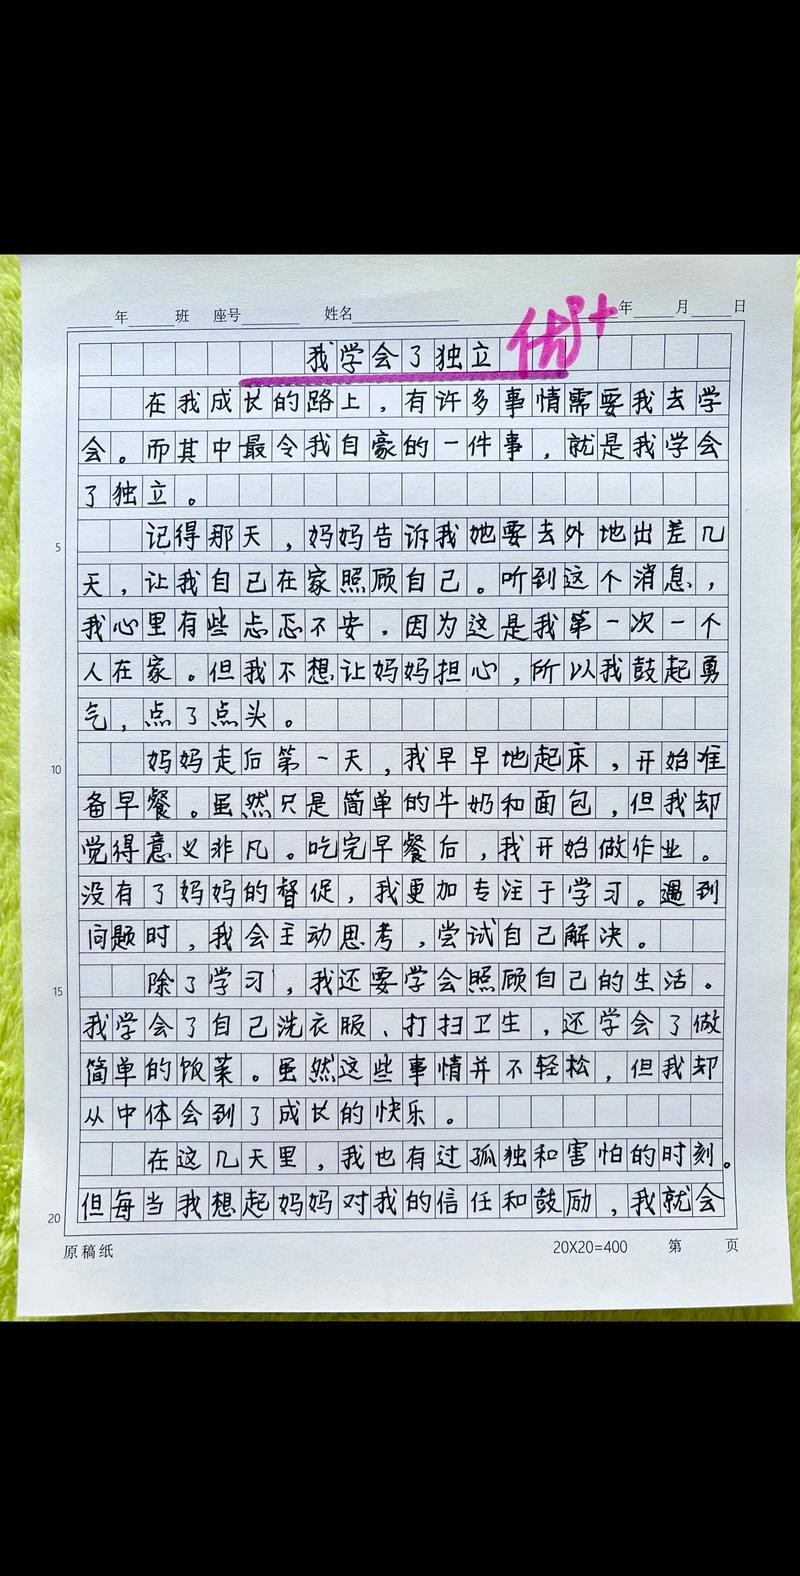 年 班 座号 姓名 年 月 日
我学会了独立 优3+
在我成长的路上，有许多事情需要我去学
会。而其中最令我自豪的一件事，就是我学会
了独立。
记得那天，妈妈告诉我她要去外地出差几
5
天，让我自己在家照顾自己。听到这个消息，
我心里有些忐忑不安，因为这是我第一次一个
人在家。但我不想让妈妈担心，所以我鼓起勇
气，点了点头。
妈妈走后第一天，我早早地起床，开始准
10
备早餐。虽然只是简单的牛奶和面包，但我却
觉得意义非凡。吃完早餐后，我开始做作业。
没有了妈妈的督促，我更加专注于学习。遇到
问题时，我会主动思考，尝试自己解决。
除了学习，我还要学会照顾自己的生活。
15
我学会了自己洗衣服、打扫卫生，还学会了做
简单的饭菜。虽然这些事情并不轻松，但我却
从中体会到了成长的快乐。
在这几天里，我也有过孤独和害怕的时刻。
但每当我想起妈妈对我的信任和鼓励，我就会
20
原稿纸 20X20=400 第 页